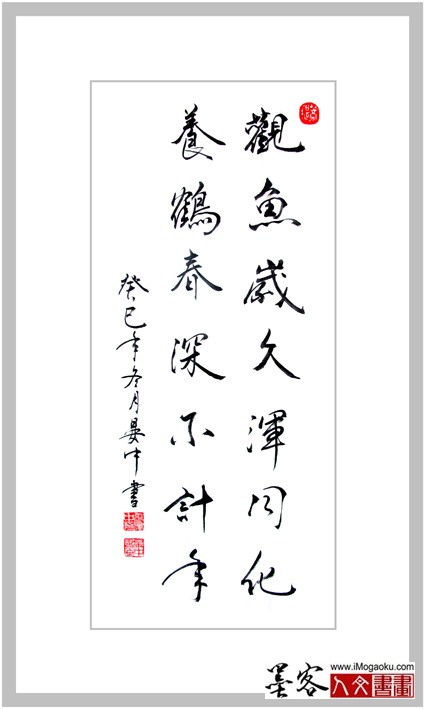 觀魚歲久渾同化
養鶴春深不計年
癸巳年冬月晏中書
墨客
www.iMogaoku.com
人文書畫